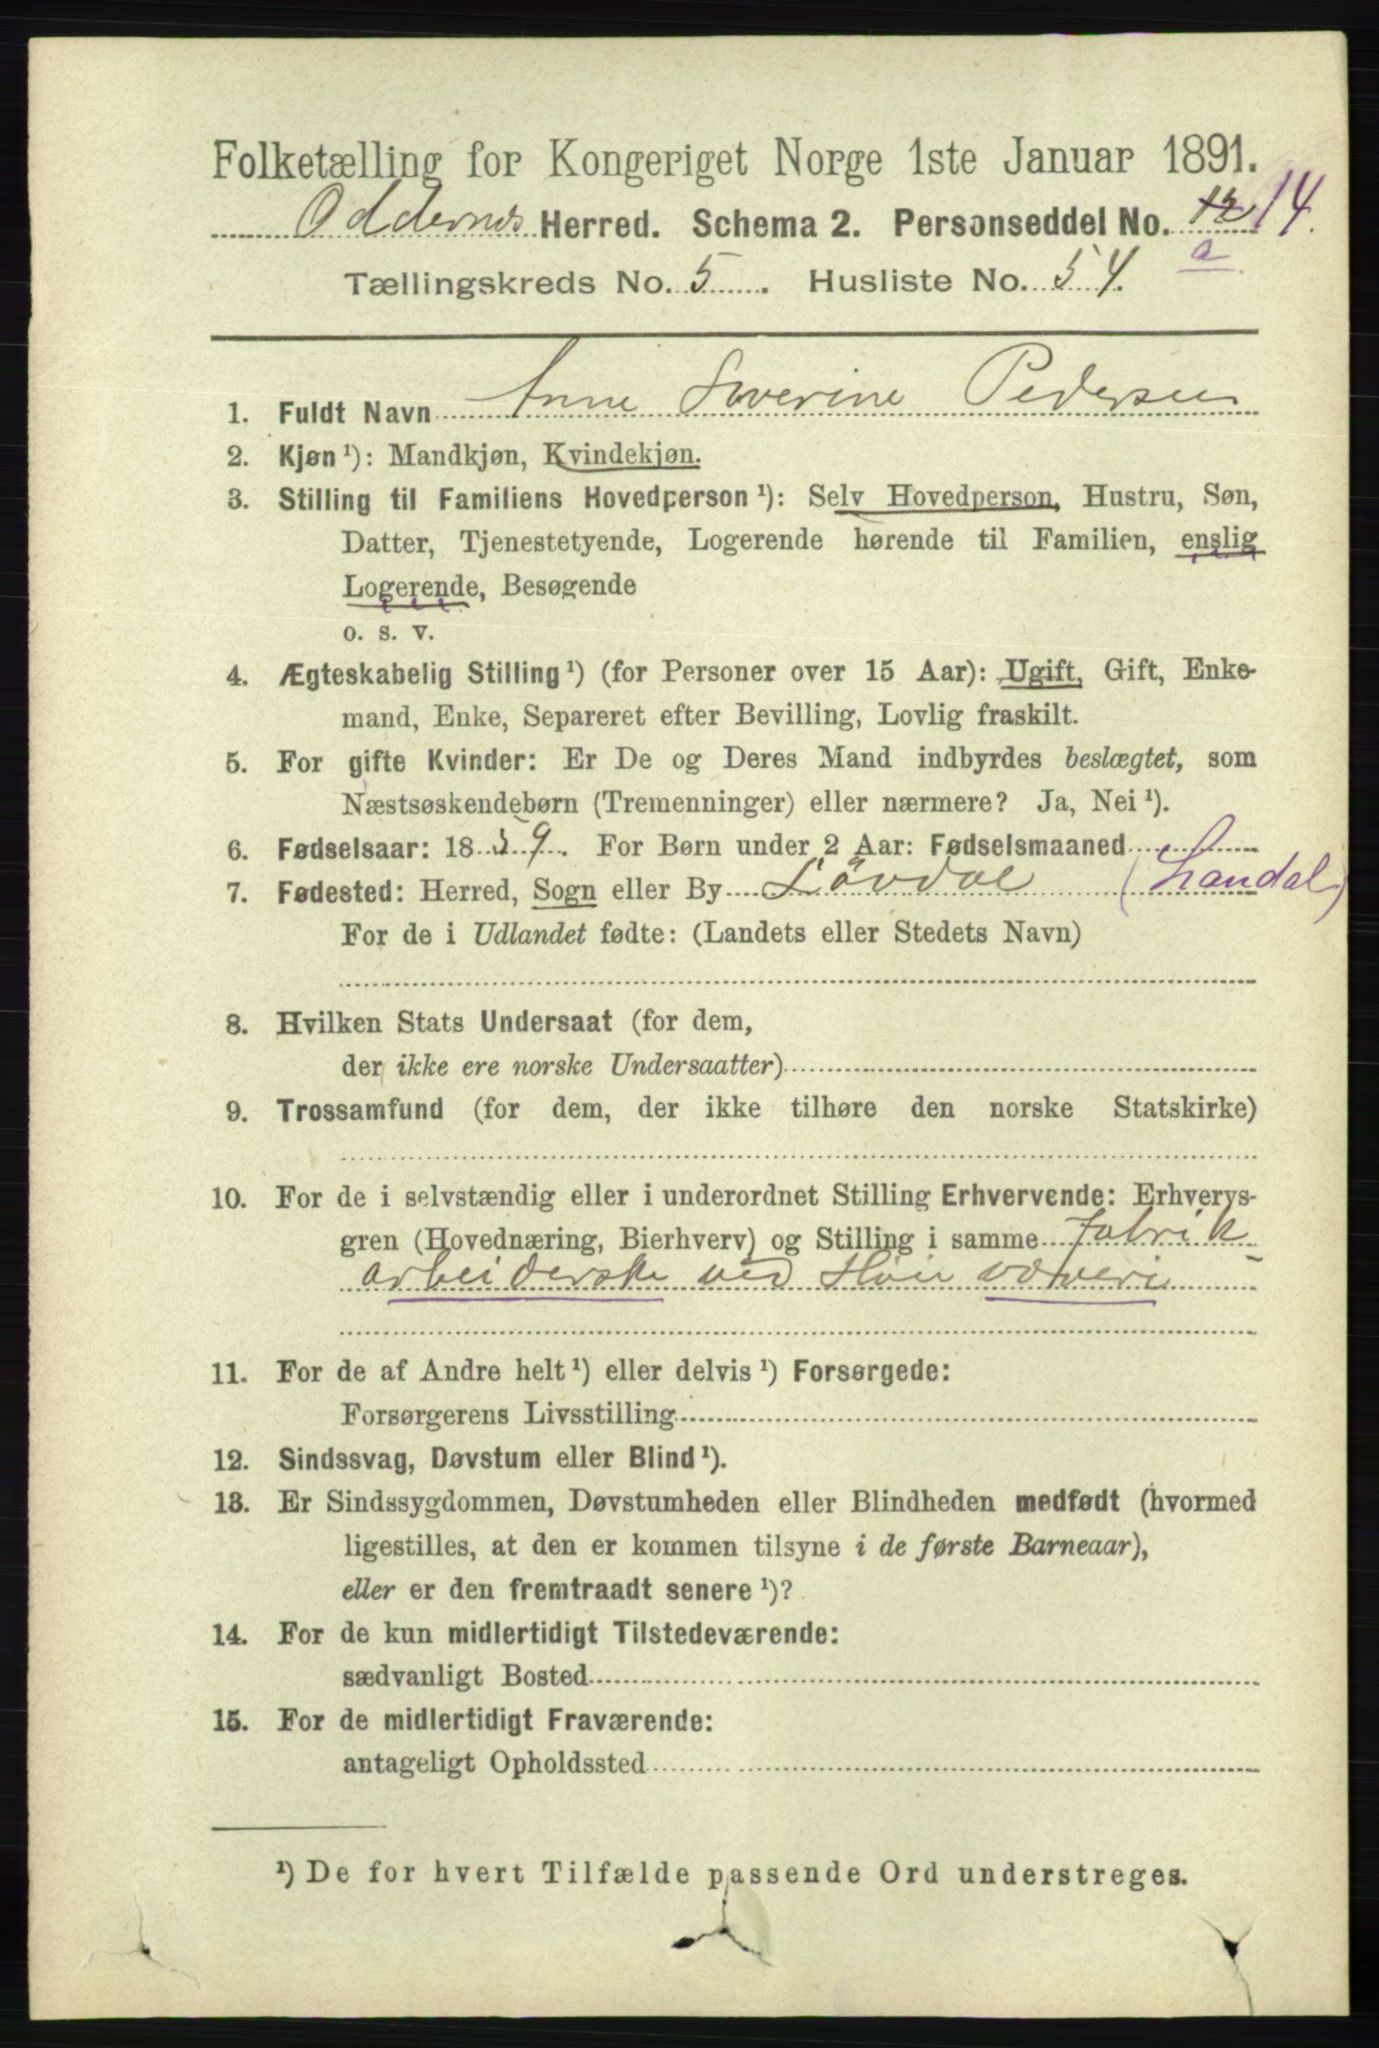 Folketælling for Kongeriget Norge 1ste Januar 1891.
Oddernes Herred. Schema 2. Personseddel No. 12 14.
a
Tællingskreds No. 5. Husliste No. 54.
1. Fuldt Navn Anne Severine Pedersen
2. Kjøn¹): Mandkjøn, Kvindekjøn.
3. Stilling til Familiens Hovedperson¹): Selv Hovedperson, Hustru, Søn,
Datter, Tjenestetyende, Logerende hørende til Familien, enslig
Logerende, Besøgende
o. s. v.
4. Ægteskabelig Stilling¹) (for Personer over 15 Aar): Ugift, Gift, Enke-
mand, Enke, Separeret efter Bevilling, Lovlig fraskilt.
5. For gifte Kvinder: Er De og Deres Mand indbyrdes beslægtet, som
Næstsøskendebørn (Tremenninger) eller nærmere? Ja, Nei¹).
6. Fødselsaar: 1859. For Børn under 2 Aar: Fødselsmaaned
7. Fødested: Herred, Sogn eller By Løvdal (Laudal)
For de i Udlandet fødte: (Landets eller Stedets Navn)
8. Hvilken Stats Undersaat (for dem,
der ikke ere norske Undersaatter)
9. Trossamfund (for dem, der ikke tilhøre den norske Statskirke)
10. For de i selvstændig eller i underordnet Stilling Erhvervende: Erhvervs-
gren (Hovednæring, Bierhverv) og Stilling i samme Fabrik-
arbeiderske ved Høie væveri
11. For de af Andre helt¹) eller delvis¹) Forsørgede:
Forsørgerens Livsstilling
12. Sindssvag, Døvstum eller Blind¹).
13. Er Sindssygdommen, Døvstumheden eller Blindheden medfødt (hvormed
ligestilles, at den er kommen tilsyne i de første Barneaar),
eller er den fremtraadt senere¹)?
14. For de kun midlertidigt Tilstedeværende:
sædvanligt Bosted
15. For de midlertidigt Fraværende:
antageligt Opholdssted
¹) De for hvert Tilfælde passende Ord understreges.